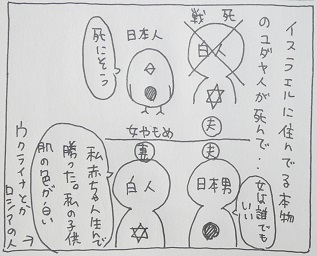 イスラエルに住んでる本物
のユダヤ人が死んで…
戦死
白人
夫
日本人
死にそう
女やもめ
夫
日本男
女は誰でも
いい
妻
白人
私赤ちゃん生んで
勝った。私の子供
肌の色が白い
ウクライナとか
ロシアの人→